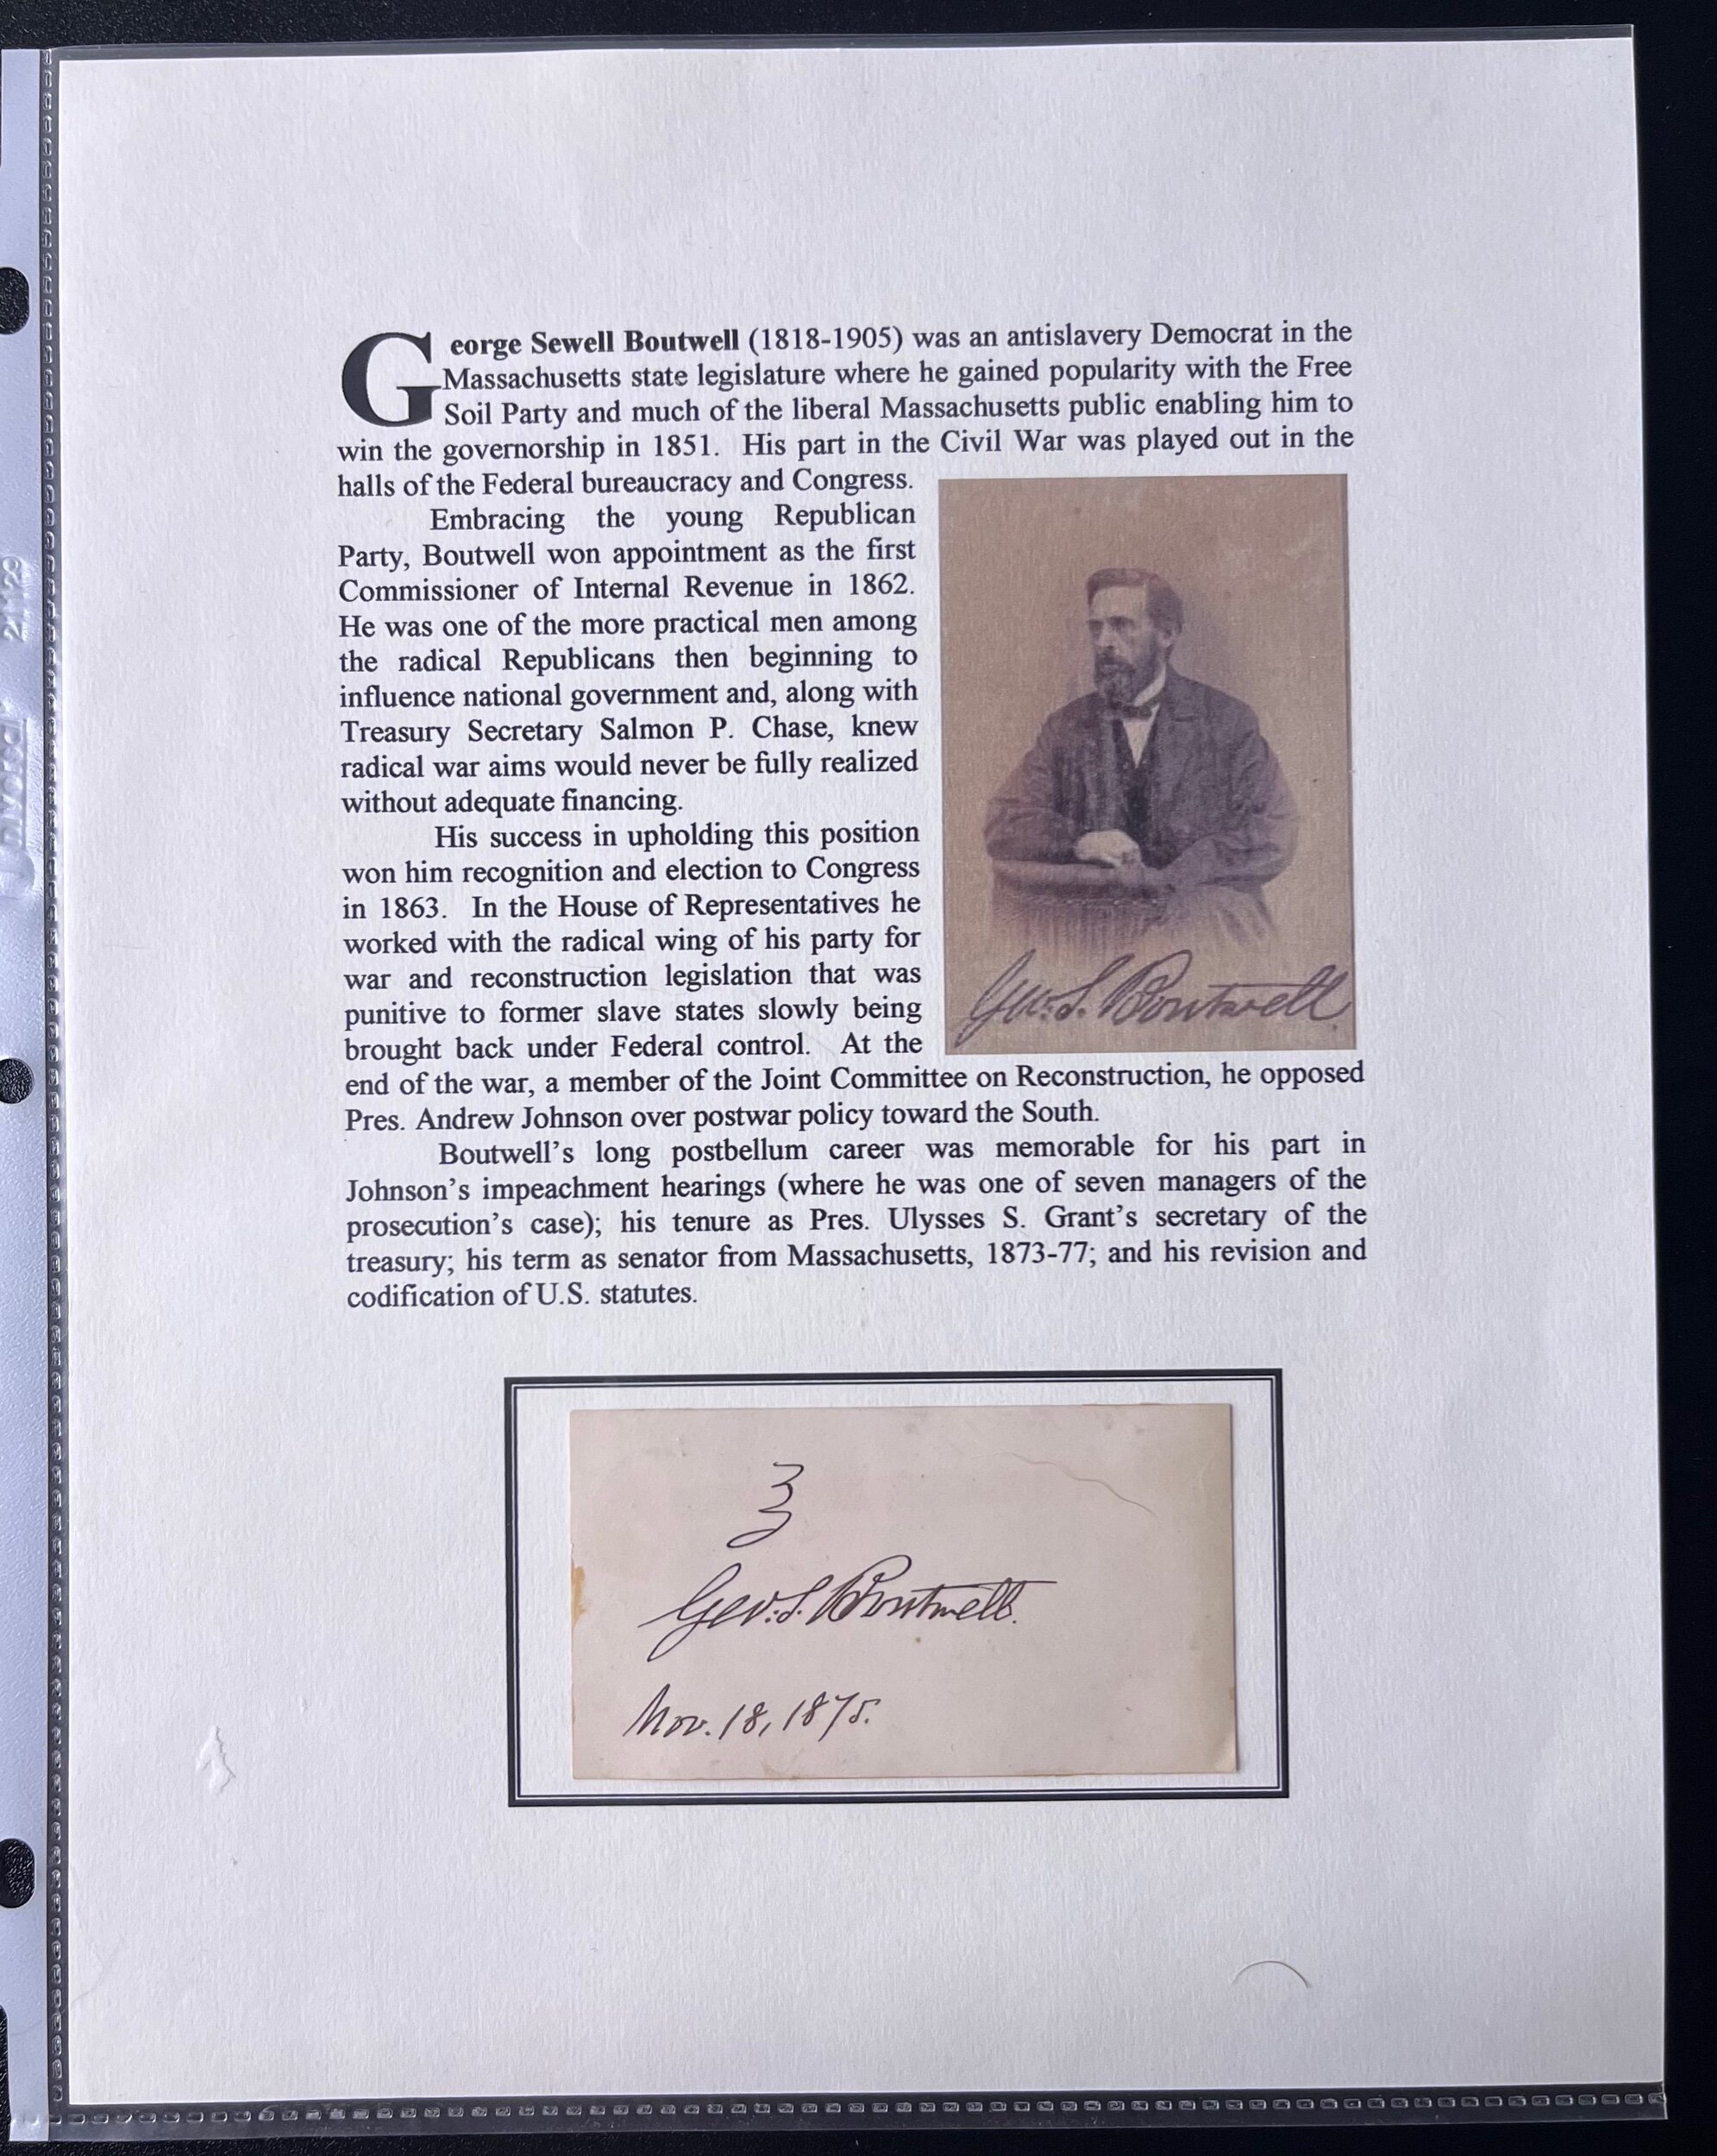 George Sewell Boutwell (1818-1905) was an antislavery Democrat in the
Massachusetts state legislature where he gained popularity with the Free
Soil Party and much of the liberal Massachusetts public enabling him to
win the governorship in 1851. His part in the Civil War was played out in the
halls of the Federal bureaucracy and Congress.
Embracing the young Republican
Party, Boutwell won appointment as the first
Commissioner of Internal Revenue in 1862.
He was one of the more practical men among
the radical Republicans then beginning to
influence national government and, along with
Treasury Secretary Salmon P. Chase, knew
radical war aims would never be fully realized
without adequate financing.
His success in upholding this position
won him recognition and election to Congress
in 1863. In the House of Representatives he
worked with the radical wing of his party for
war and reconstruction legislation that was
punitive to former slave states slowly being
brought back under Federal control. At the
end of the war, a member of the Joint Committee on Reconstruction, he opposed
Pres. Andrew Johnson over postwar policy toward the South.
Boutwell's long postbellum career was memorable for his part in
Johnson's impeachment hearings (where he was one of seven managers of the
prosecution's case); his tenure as Pres. Ulysses S. Grant's secretary of the
treasury; his term as senator from Massachusetts, 1873-77; and his revision and
codification of U.S. statutes.
Geo. S. Boutwell.
3
Geo. S. Boutwell.
Nov. 18, 1875.